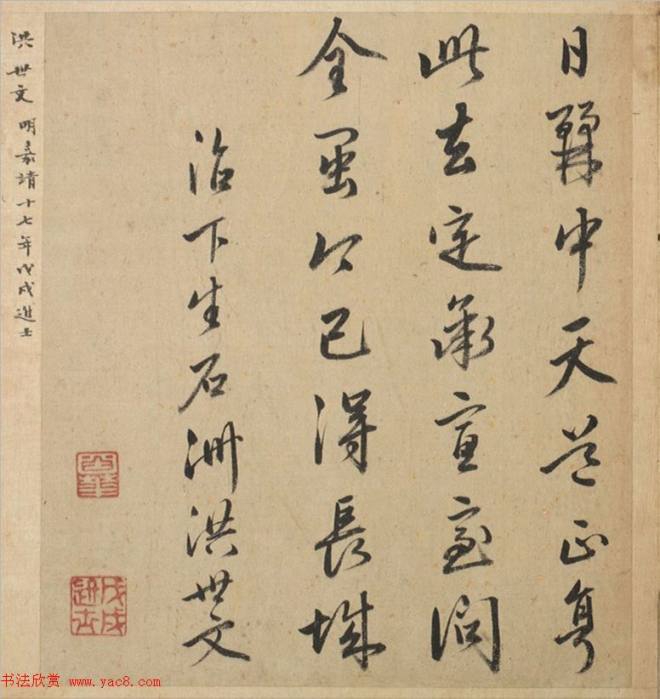 日丽中天荅正身
此去定承宣室问
全蜀今已得長城
治下生石洲洪世文
洪世文 明嘉靖十七年戊戌進士
戊戌進士
书法欣赏 www.yac8.com